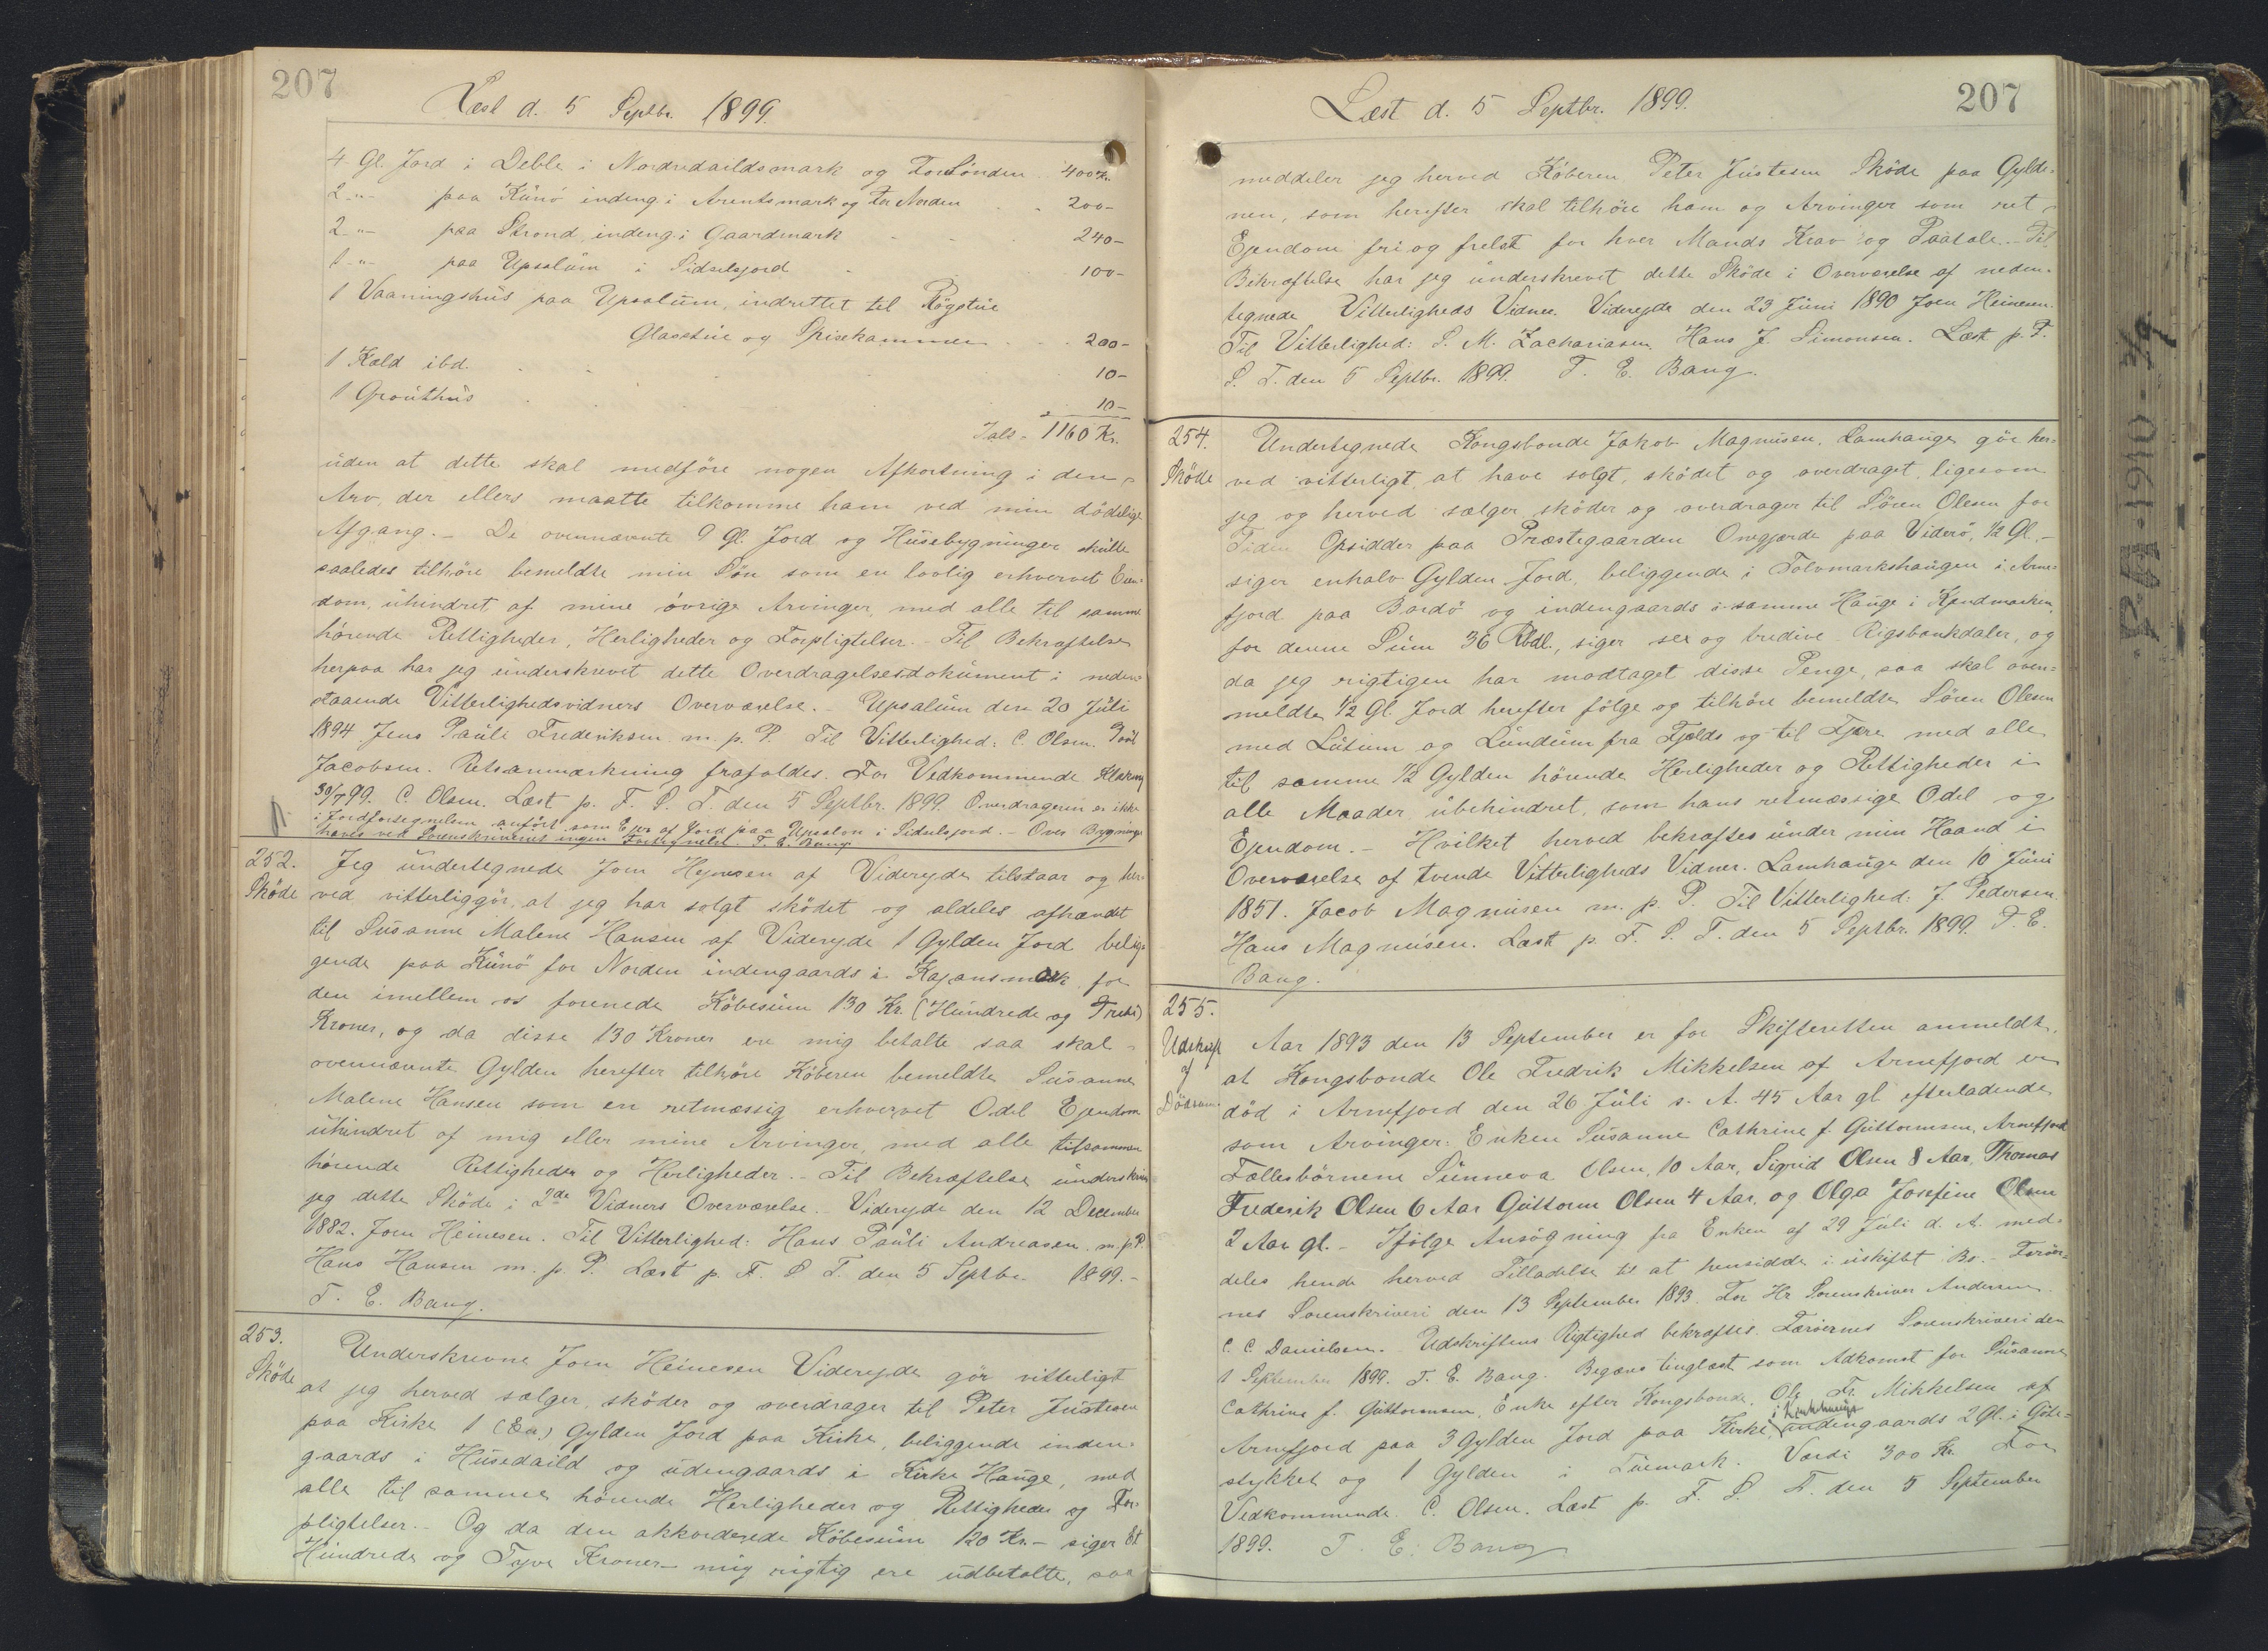 207
Læst d. 5 Septbr. 1899.
4 Gl. Jord i Deble i Nordredaildsmark og For Sönden 400 Kr.
2 -"- paa Kunö indeng. i Arentsmark og for Norden 200 -
2 -"- paa Strond indeng. i Gaardmark 240 -
1 -"- paa Upsalum i Sidselsjord 100 -
1 Vaaningshus paa Upsalum, indrettet til Rögstue
Glasstue og Spisekammer 200 -
1 Kald ibd. 10 -
1 Grouthus 10 -
Ialt - 1160 Kr.
uden at dette skal medföre nogen Afkortning i den
Arv, der ellers maatte tilkomme ham ved min dödelige
Afgang. - De ovennævnte 9 Gl. Jord og Husebygninger skulle
saaledes tilhöre bemeldte min Sön som en lovlig erhvervet Eien-
dom, uhindret af mine övrige Arvinger, med alle til samme
hörende Rettigheder, Herligheder og Forpligtelser. - Til Bekræftelse
herpaa har jeg underskrevet dette Overdragelsesdokument i neden-
staaende Vitterlighedsvidners Overværelse. - Upsalum den 20 Juli
1894 Jens Pauli Frederiksen m. p. P. Til Vitterlighed: C. Olsen. Poul
Jacobsen. Retsanmærkning frafaldes. For Vedkommende Klaksvig
30/7 99. C. Olsen. Læst p. F. S. T. den 5 Septbr. 1899. Overdrageren er ikke
i Jordfortegnelsen anfört som Ejer af Jord paa Upsalon i Sidselsjord. - Over Bygninger
haves ved Sorenskriveriet ingen Fortegnelse. T. E. Bang
252. Jeg undertegnede Joen Heynesen af Videreyde tilstaar og her-
Sköde ved vitterliggör, at jeg har solgt sködet og aldeles afhændet
til Susanne Malene Hansen af Videreyde 1 Gylden Jord belig-
gende paa Kunö for Norden indengaards i Kajansmark for
den imellem os forenede Köbesum 130 Kr. (Hundrede og Tredive)
Kroner, og da disse 130 Kroner ere mig betalte saa skal
ovennævnte Gylden herefter tilhöre Köberen bemeldte Susanne
Malene Hansen som en retmæssig erhvervet Odel Ejendom
uhindret af mig eller mine Arvinger, med alle tilsammen
hörende Rettigheder og Herligheder. - Til Bekræftelse underskriver
jeg dette Sköde i 2de Vidners Overværelse. - Videreyde den 12 December
1882. Joen Heinesen. Til Vitterlighed: Hans Pauli Andreasen. m. p. P.
Hans Hansen m. p. P. Læst p. F. S. T. den 5 Septbr. 1899. -
T. E. Bang.
253. Underskrevne Joen Heinesen Videreyde gör vitterligt
Sköde at jeg herved sælger, sköder og overdrager til Peter Justesen
paa Kirke 1 (En) Gylden Jord paa Kirke, beliggende inden-
gaards i Husedaild og udengaards i Kirke Hauge, med
alle til samme hörende Herligheder og Rettigheder og For-
pligtelser. - Og da den akkorderede Köbesum 120 Kr. - siger Et
Hundrede og Tyve Kroner - mig rigtig ere udbetalte, saa
Læst d. 5 Septbr. 1899.
207
meddeler jeg herved Köberen Peter Justesen Sköde paa Gylde-
nen, som herefter skal tilhöre ham og Arvinger som ret
Ejendom fri og frelst for hver Mands Krav og Paatale. - Til
Bekræftelse har jeg underskrevet dette Sköde i Overværelse af neden-
tegnede Vitterligheds Vidner. Videreyde den 23 Juni 1890 Joen Heinesen.
Til Vitterlighed: S. M. Zachariasen. Hans J. Simonsen. Læst p. F.
S. T. den 5 Septbr. 1899. T. E. Bang.
254. Undertegnede Kongsbonde Jakob Magnusen, Lamhauge gör her-
Sköde ved vitterligt, at have solgt, sködet og overdraget, ligesom
jeg og herved sælger sköder og overdrager til Sören Olesen for
Tiden Opsidder paa Præstegaarden Onegjærde paa Viderö, 1/2 Gl. -
siger enhalv Gylden Jord, beliggende i Tolvmarkshaugen i Arne-
fjord paa Bordö og indengaards i samme Hauge i Kjendmarken,
for denne Sum 36 Rbdl., siger sex og tredive Rigsbankdaler, og
da jeg rigtigen har modtaget disse Penge, saa skal oven-
meldte 1/2 Gl. Jord herefter fölge og tilhöre bemeldte Sören Olesen
med Lutum og Lundum fra Fjelds og til Fjære med alle
til samme 1/2 Gylden hörende Herligheder og Rettigheder i
alle Maader ubehindret, som hans retmæssige Odel og
Ejendom. - Hvilket herved bekræftes under min Haand i
Overværelse af tvende Vitterligheds Vidner. Lamhauge den 10 Juni
1851. Jacob Magnusen m. p. P. Til Vitterlighed: J. Pedersen.
Hans Magnusen. Læst p. F. S. T. den 5 Septbr. 1899. T. E.
Bang.
255.
Udskrift Aar 1893 den 13 September er for Skifteretten anmeldt,
af at Kongsbonde Ole Fredrik Mikkelsen af Arnefjord er
Dödsanm. död i Arnefjord den 26 Juli s. A. 45 Aar gl. efterladende
som Arvinger: Enken Susanne Cathrine f. Guttormsen, Arnefjord
Fællesbörnene Sunneva Olsen, 10 Aar, Sigrid Olsen 8 Aar, Thomas
Frederik Olsen 6 Aar Guttorm Olsen 4 Aar og Olga Josefine Olsen
2 Aar gl. - Ifölge Ansögning fra Enken af 29 Juli d. A. med-
deles hende herved Tilladelse til at hensidde i uskiftet Bo. Færöer-
nes Sorenskriveri den 13 September 1893. For Hr Sorenskriver Andersen
C. C. Danielsen. - Udskriftens Rigtighed bekræftes. Færöernes Sorenskriveri den
1 September 1899. T. E. Bang. Begæres tinglæst som Adkomst for Susanne
Cathrine f. Guttormsen, Enke efter Kongsbonde, Ole Fr. Mikkelsen af
Arnefjord paa 3 Gylden Jord paa Kirke, i Kirkhauge indengaards 2 Gl. i Göte-
stykket og 1 Gylden i Tuemark. Værdi 300 Kr. For
Vedkommende. C. Olsen. Læst p. F. S. T. den 5 September
1899. T. E. Bang